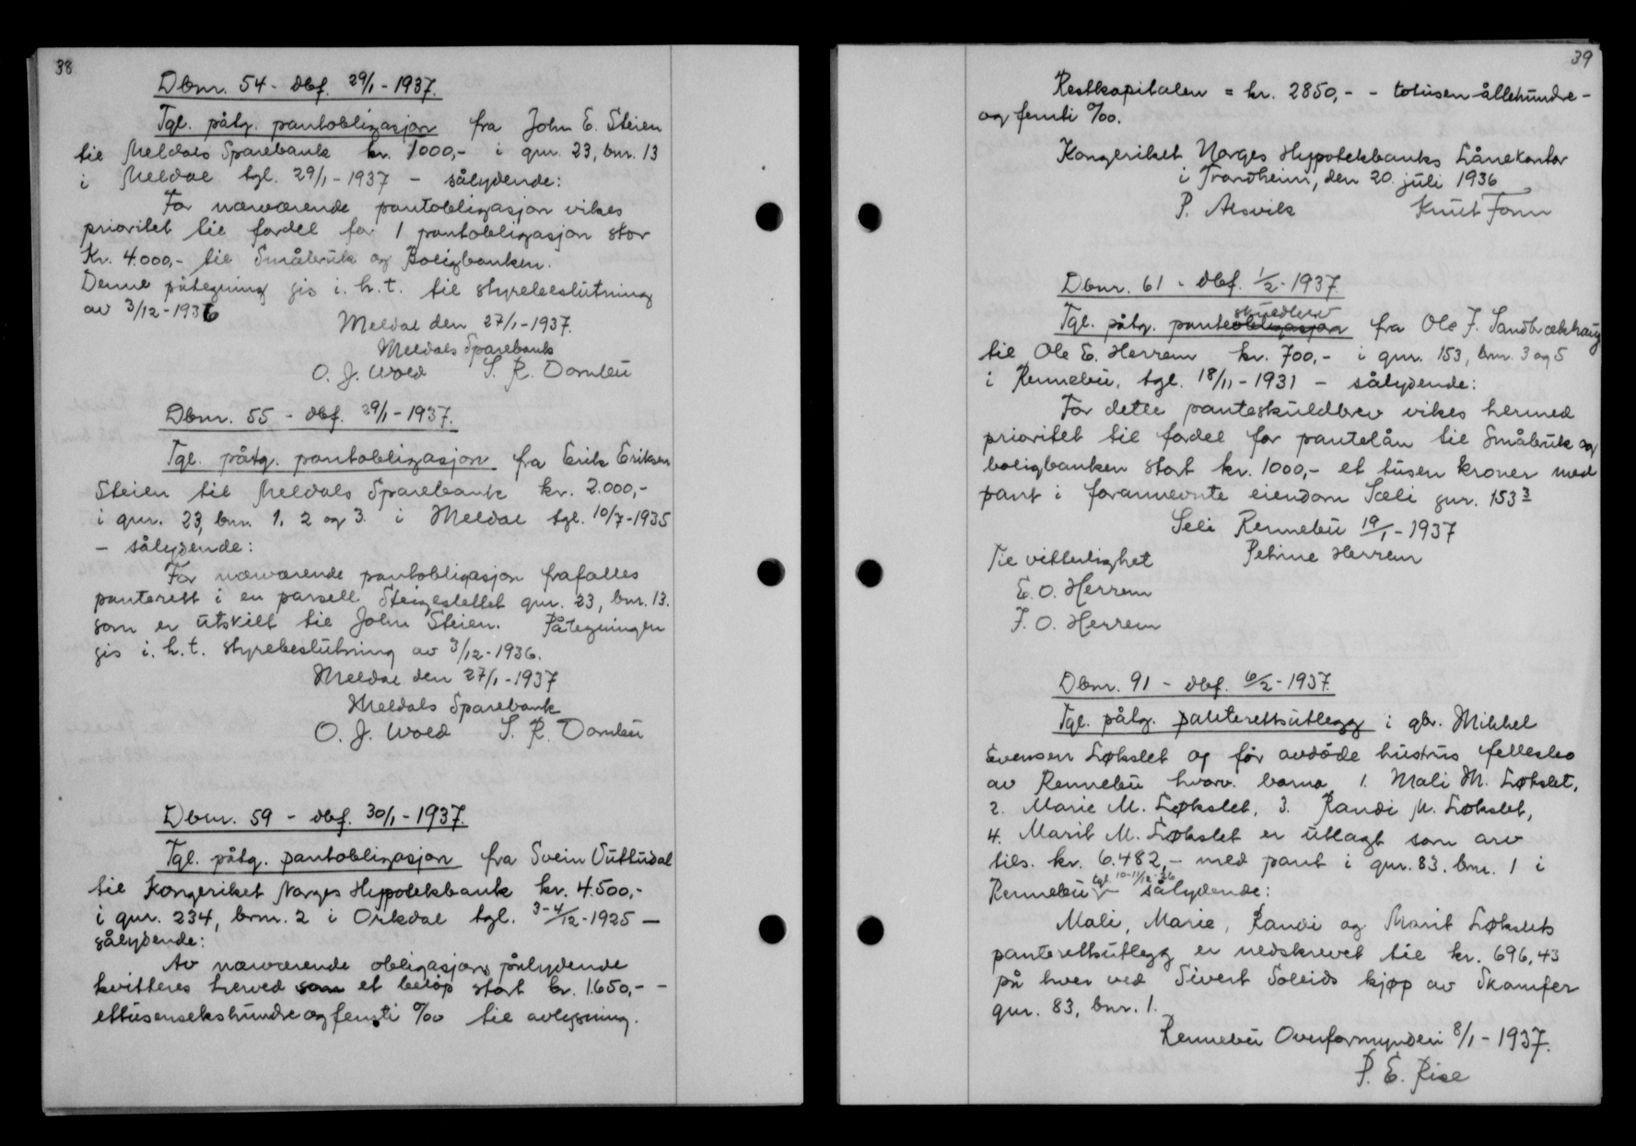 38
Dbnr. 54 - dbf. 29/1 - 1937.
Tgl. påtg. pantobligasjon fra John E. Steien
til Meldals Sparebank kr. 1000,- i gnr. 23, bnr. 13
i Meldal tgl. 29/1 - 1937 - sålydende:
For nærværende pantobligasjon vikes
prioritet til fordel for 1 pantobligasjon stor
Kr. 4.000,- til Småbruk og Boligbanken.
Denne påtegning gis i. h. t. til styrebeslutning
av 3/12 - 1936
Meldal den 27/1 - 1937.
Meldals Sparebank
O. J. Wold S. R. Dombu
Dbnr. 55 - dbf. 29/1 - 1937.
Tgl. påtg. pantobligasjon fra Erik Eriksen
Steien til Meldals Sparebank kr. 2.000,-
i gnr. 23, bnr. 1, 2 og 3 i Meldal tgl. 10/7 - 1935
- sålydende:
For nærværende pantobligasjon frafalles
panterett i en parsell Steigeslettet gnr. 23, bnr. 13.
som er utskilt til John Steien. Påtegningen
gis i. h. t. styrebeslutning av 3/12 - 1936.
Meldal den 27/1 - 1937
Meldals Sparebank
O. J. Wold S. R. Dombu
Dbnr. 59 - dbf. 30/1 - 1937.
Tgl. påtg. pantobligasjon fra Svein Uttudal
til Kongeriket Norges Hypotekbank kr. 4.500,-
i gnr. 234, bnr. 2 i Orkdal tgl. 3-4/12 - 1925 -
sålydende:
Av nærværende obligasjons pålydende
kvitteres herved som et beløp stort kr. 1.650,- -
ettusensekshundreogfemti %oo til avlysning.
39
Restkapitalen = kr. 2850,- - totusenåttehundre-
og femti %oo.
Kongeriket Norges Hypotekbanks Lånekontor
i Trondheim, den 20. juli 1936
P. Alsvik Knut Fonn
Dbnr. 61 - dbf. 1/2 - 1937
skuldbrev
Tgl. påtg. panteobligasjon fra Ole J. Sandbrækhaug
til Ole E. Herrem kr. 700,- i gnr. 153, bnr. 3 og 5
i Rennebu, tgl. 18/11 - 1931 - sålydende:
For dette panteskuldbrev vikes hermed
prioritet til fordel for pantelån til Småbruk og
boligbanken stort kr. 1000,- et tusen kroner med
pant i forannevnte eiendom Sæli gnr. 153 3
Seli Rennebu 19/1 - 1937
Til vitterlighet Petrine Herrem
E. O. Herrem
J. O. Herrem
Dbnr. 91 - dbf. 6/2 - 1937.
Tgl. påtg. panterettsutlegg i gbr. Mikkel
Evensen Løkslet og før avdöde hustrus fellesbo
av Rennebu hvorv. barna 1. Mali M. Løkslet,
2. Marie M. Løkslet, 3. Randi M. Løkslet,
4. Marit M. Løkslet er utlagt som arv
tils. kr. 6.482,- med pant i gnr. 83. bnr. 1 i
Rennebu tgl. 10-11/12-36 sålydende:
Mali, Marie, Randi og Marit Løkslets
panterettsutlegg er nedskrevet til kr. 696,43
på hver ved Sivert Soleids kjøp av Skamfer
gnr. 83, bnr. 1.
Rennebu Overformynderi 8/1 - 1937.
P. E. Rise